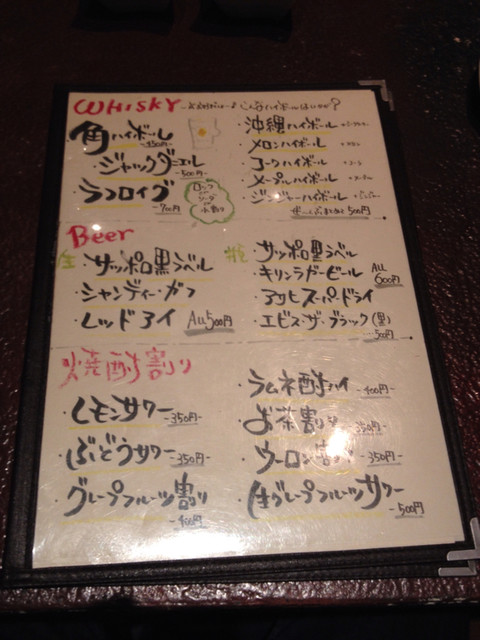 WHISKY こんなハイボールはいかが？
角ハイボール -350円-
・ジャックダニエル -500円-
・ラフロイグ -700円-
ロック
ソーダ
水割り
・沖縄ハイボール
・メロンハイボール
・コークハイボール
・メープルハイボール
・ジンジャーハイボール
500円
Beer
生
・サッポロ黒ラベル
・シャンディーガフ
・レッドアイ All 500円
瓶
・サッポロ黒ラベル
・キリンラガービール All 600円
・アサヒスーパードライ
・エビス・ザ・ブラック(黒) -500円-
焼酎割り
・レモンサワー -350円-
・ぶどうサワー -350円-
・グレープフルーツ割り -400円-
・ラムネ酎ハイ -400円-
・お茶割り -350円-
・ウーロン割り -350円-
・生グレープフルーツサワー -500円-